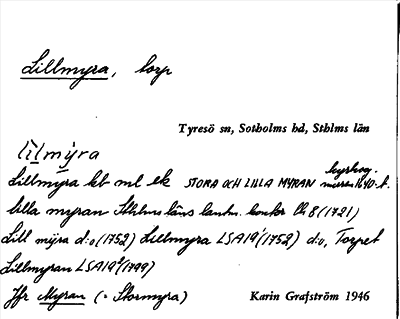 Lillmyra, torp
Tyresö sn, Sotholms hd, Sthlms län
lìlmỳra
kyrkog.
Lillmyra kb ml ek STORA OCH LILLA MYRAN 1640-t.
lilla myran Sthlms läns lantm. kontor 8 (1721)
Lill mÿra d:o (1752) Lillmyra LSA19 (1752) d:o, Torpet
Lillmyran LSA19 (1799)
Jfr Myran (= Stormyra)
Karin Grafström 1946